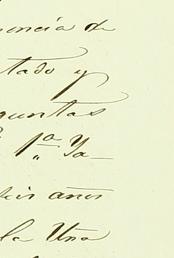 encia de
tado y
guntas
1ª Ya-
seis años
la Una